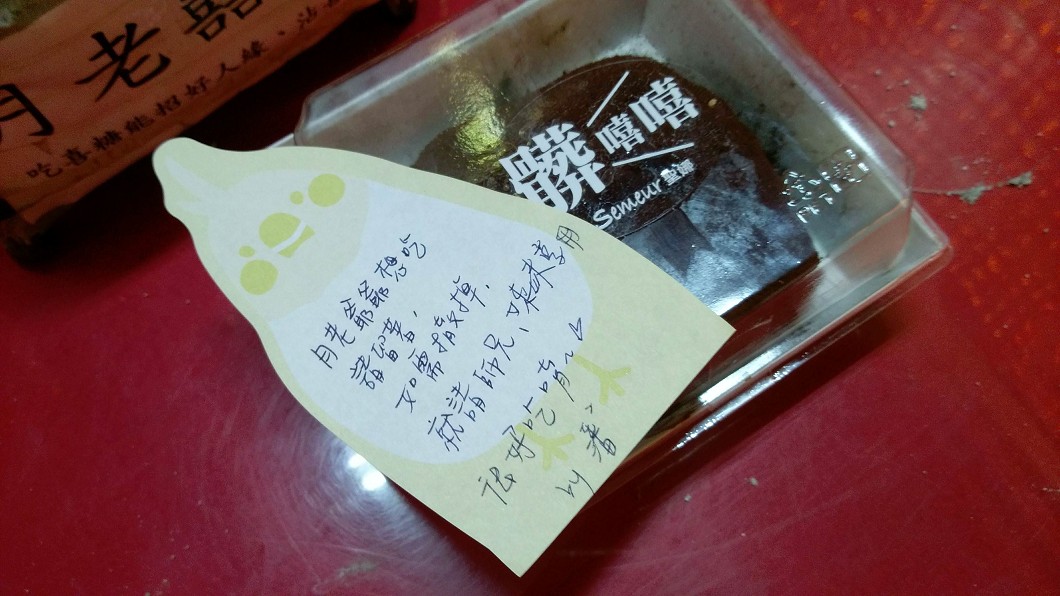 月老囍
吃喜糖能招好人緣、沾
髒
嘻嘻
Semeur 聖娜
月老爺爺想吃
請留著,
如需撤掉,
就請師兄、妹來享用
很好吃唷~♡
by